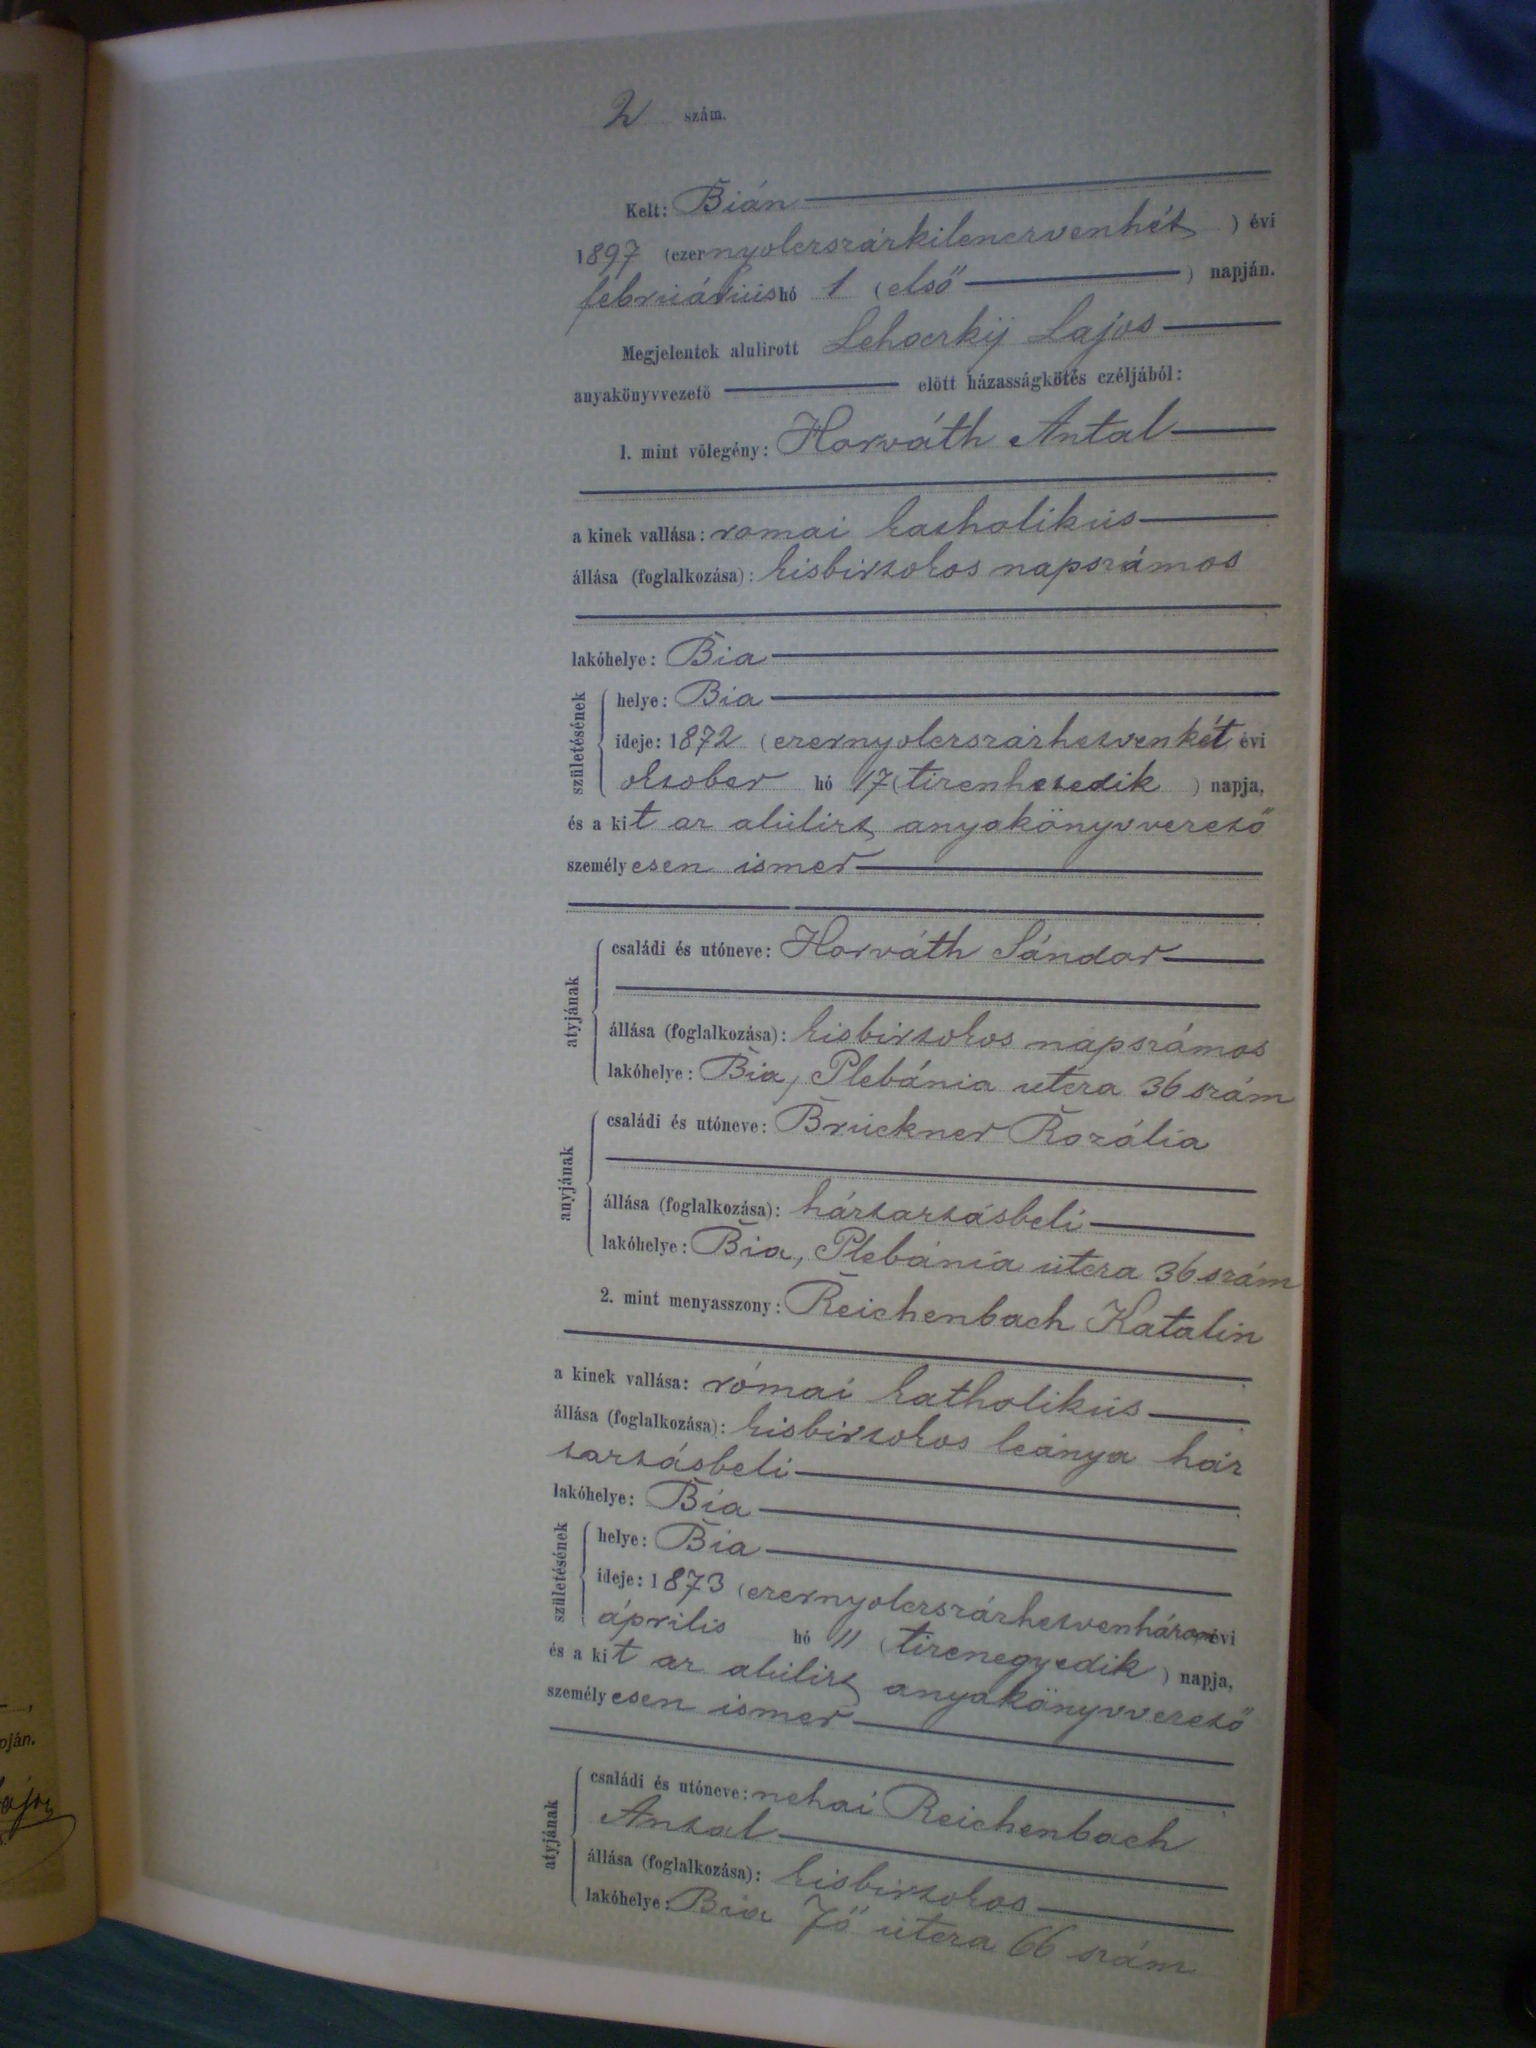 2 szám.
Kelt: Bián
1897 (ezernyolczszázkilenczvenhét) évi
februáriushó 1 (első) napján.
Megjelentek alulirott Lehoczkÿ Lajos
anyakönyvvezető előtt házasságkötés czéljából:
1. mint vőlegény: Horváth Antal
a kinek vallása: romai katholikus
állása (foglalkozása): kisbirtokos napszámos
lakóhelye: Bia
születésének
helye: Bia
ideje: 1872 (ezernyolczszázhetvenkét évi
oktober hó 17 (tizenhetedik) napja,
és a kit az alulirt anyakönyvvezető
személyesen ismer
atyjának
családi és utóneve: Horváth Sándor
állása (foglalkozása): kisbirtokos napszámos
lakóhelye: Bia, Plebánia utcza 36 szám
anyjának
családi és utóneve: Bruckner Rozália
állása (foglalkozása): háztartásbeli
lakóhelye: Bia, Plebánia utcza 36 szám
2. mint menyasszony: Reichenbach Katalin
a kinek vallása: római katholikus
állása (foglalkozása): kisbirtokos leánya ház
tartásbeli
lakóhelye: Bia
születésének
helye: Bia
ideje: 1873 (ezernyolczszázhetvenhárom évi
április hó 11 (tizenegyedik) napja,
és a kit az alulirt anyakönyvvezető
személyesen ismer
atyjának
családi és utóneve: nehai Reichenbach
Antal
állása (foglalkozása): kisbirtokos
lakóhelye: Bia Fő utcza 66 szám